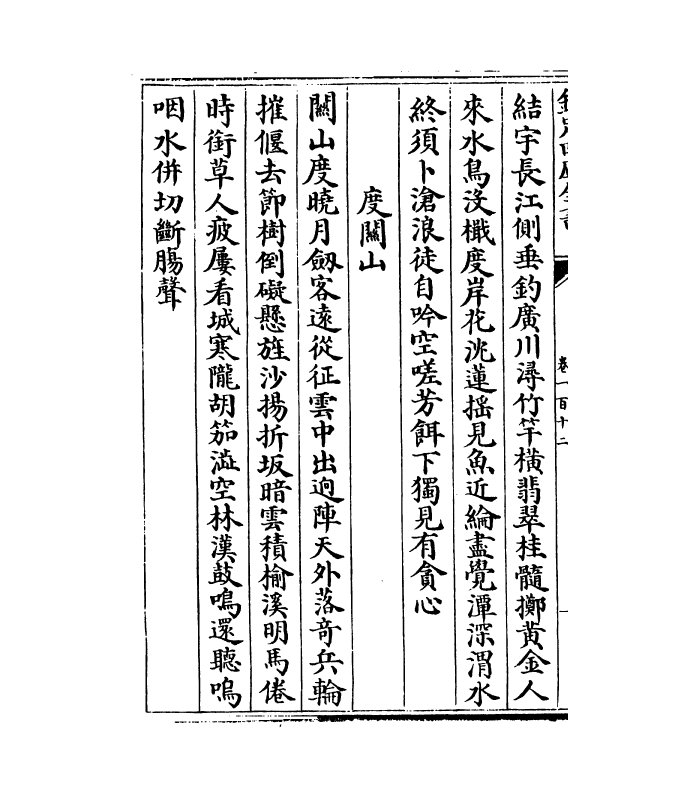 欽定四庫全書
卷一百十二
結宇長江側垂釣廣川潯竹竿橫翡翠桂髓擲黃金人
來水鳥沒檝度岸花沈蓮揺見魚近綸盡覺潭深渭水
終須卜滄浪徒自吟空嗟芳餌下獨見有貪心
度關山
關山度曉月劒客遠從征雲中出迥陣天外落竒兵輪
摧偃去節樹倒礙懸旌沙揚折坂暗雲積榆溪明馬倦
時銜草人疲屢看城寒隴胡笳澁空林漢鼓鳴還聽嗚
咽水併切斷腸聲